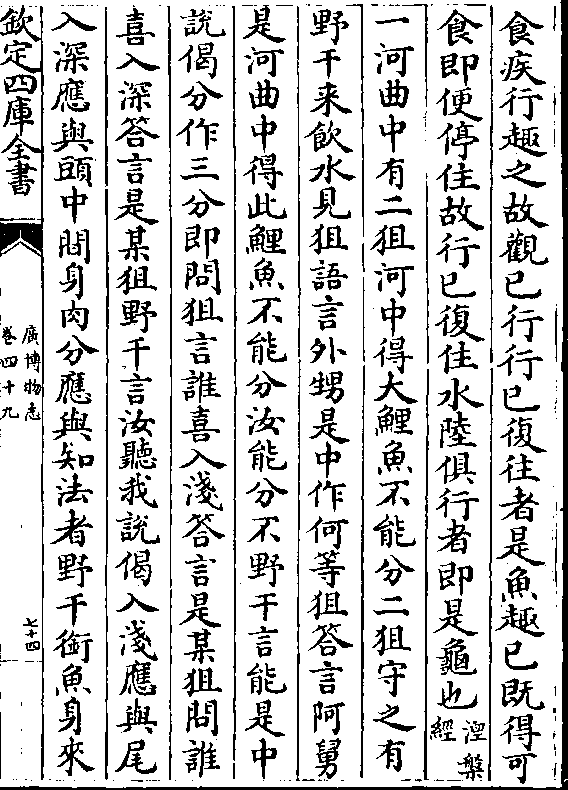 食疾行趣之故觀已行行已復往者是魚趣已既得可
食即便停住故行已復住水陸俱行者即是龜也涅槃經
一河曲中有二狙河中得大鯉魚不能分二狙守之有
野干来飲水見狙語言外甥是中作何等狙答言阿舅
是河曲中得此鯉魚不能分汝能分不野干言能是中
說偈分作三分即問狙言誰喜入淺答言是某狙問誰
喜入深答言是某狙野干言汝聽我說偈入淺應與尾
入深應與頭中間身肉分應與知法者野干銜魚身來
欽定四庫全書
廣博物志
卷四十九
七十四